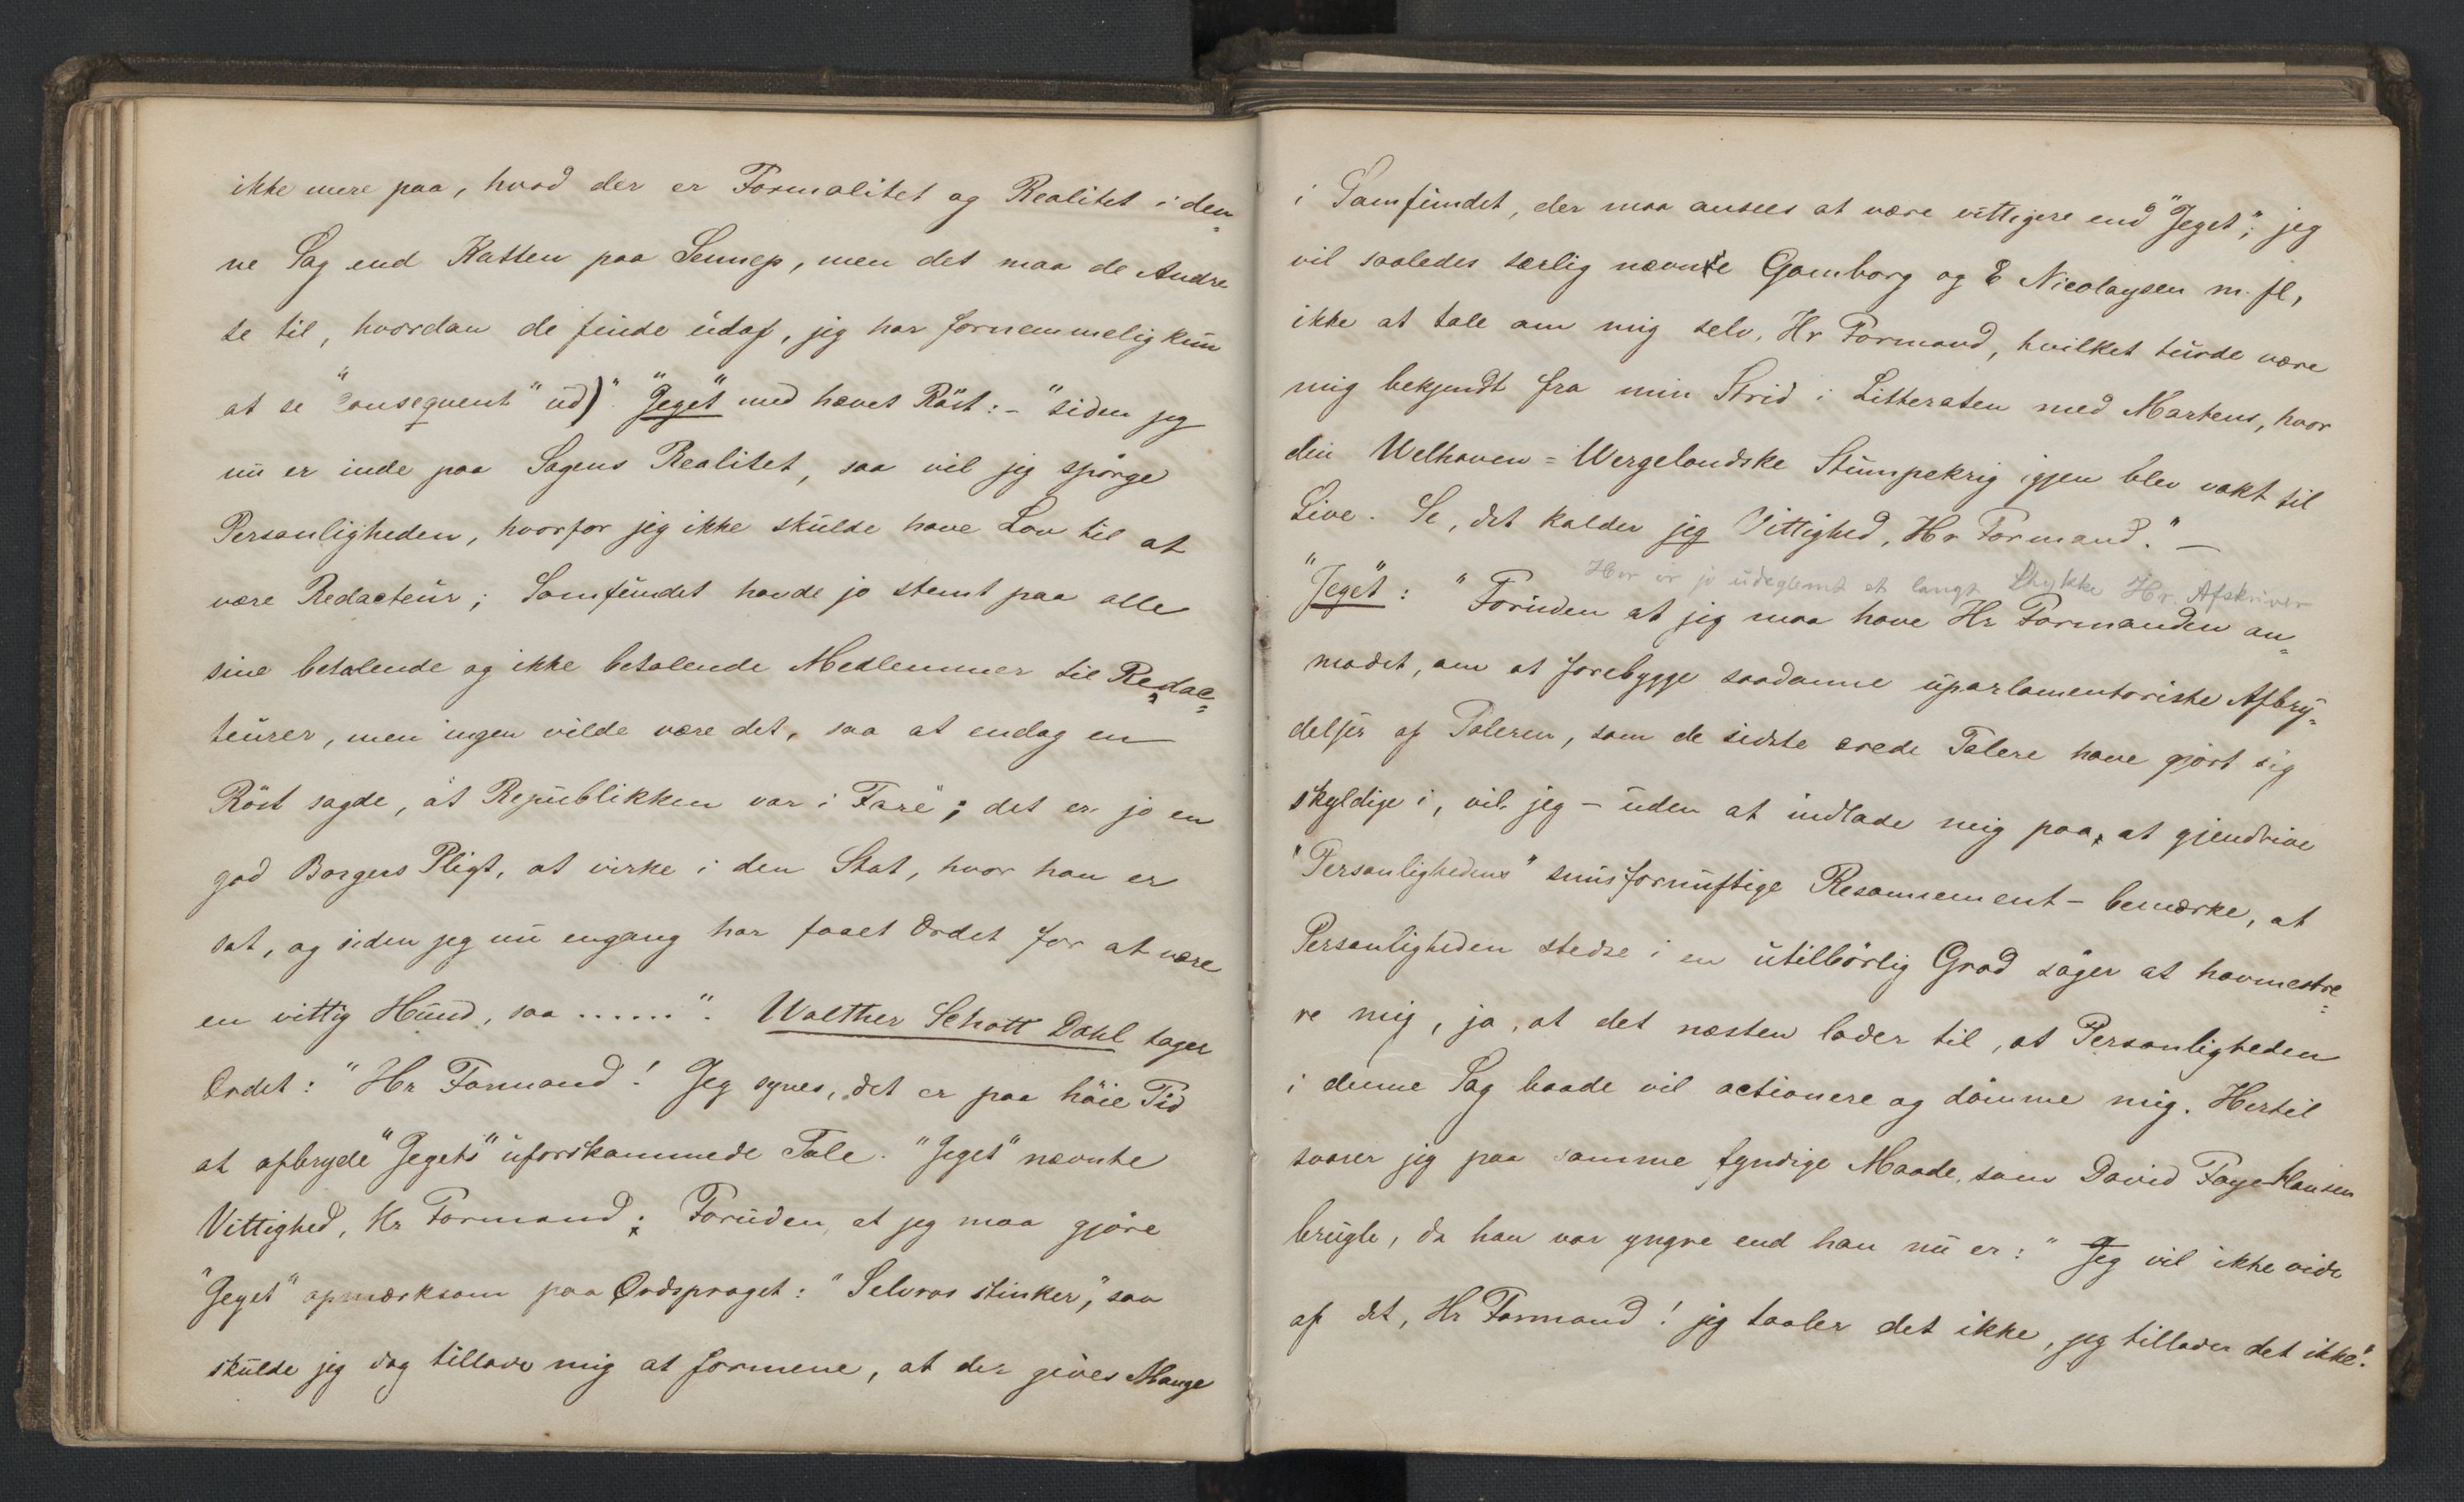 ikke mere paa, hvad der er Formalitet og Realitet i den-
ne Sag end Katten paa Sennep, men det maa de Andre
se til, hvordan de finde udaf, jeg har fornemmelig kun
at se "consequent" ud)". "Jeget" med hævet Röst: - "siden jeg
nu er inde paa Sagens Realitet, saa vil jeg spörge
Personligheden, hvorfor jeg ikke skulde have Lov til at
være Redacteur; Samfundet havde jo stemt paa alle
sine betalende og ikke betalende Medlemmer til Redac-
teurer, men ingen vilde være det, saa at endog en
Röst sagde, "at Republikken var i Fare"; det er jo en
god Borgers Pligt, at virke i den Stat, hvor han er
sat, og siden jeg nu engang har faaet Ordet for at være
en vittig Hund, saa ......". Walther Schott Dahl tager
Ordet: "Hr Formand! Jeg synes, det er paa höie Tid
at afbryde "Jegets" uforskammede Tale. "Jeget" nævnte
Vittighed, Hr Formand; Foruden, at jeg maa gjöre
"Jeget" opmærksom paa Ordsproget: "Selvros stinker", saa
skulde jeg dog tillade mig at formene, at der gives Mange
i Samfundet, der maa ansees at være vittigere end "Jeget"; jeg
vil saaledes særlig nævne Gamborg og E Nicolaysen m. fl,
ikke at tale om mig selv, Hr Formand, hvilket turde være
mig bekjendt fra min Strid i Litteraten med Martens, hvor
din Welhaven=Wergelandske Stumpekrig igjen blev vakt til
Live. Se, det kalder jeg Vittighed, Hr Formand." -
Her er jo udeglemt et langt Stykke Hr. Afskriver
"Jeget": "Foruden at jeg maa have Hr Formanden an-
modet, om at forebygge saadanne uparlamentariske Afbry-
delser af Taleren, som de sidste ærede Talere have gjort sig
skyldige i, vil jeg - uden at indlade mig paa, at gjendrive
"Personlighedens" snusfornuftige Resonnement - bemærke, at
Personligheden stedse i en utilbörlig Grad söger at hovmestre-
re mig, ja, at det næsten lader til, at Personligheden
i denne Sag baade vil actionere og dömme mig. Hertil
svarer jeg paa samme fyndige Maade, som David Faye Hansen
brugte, da han var yngre end han nu er: "Jeg vil ikke vide
af det, Hr Formand! jeg taaler det ikke, jeg tillader det ikke".